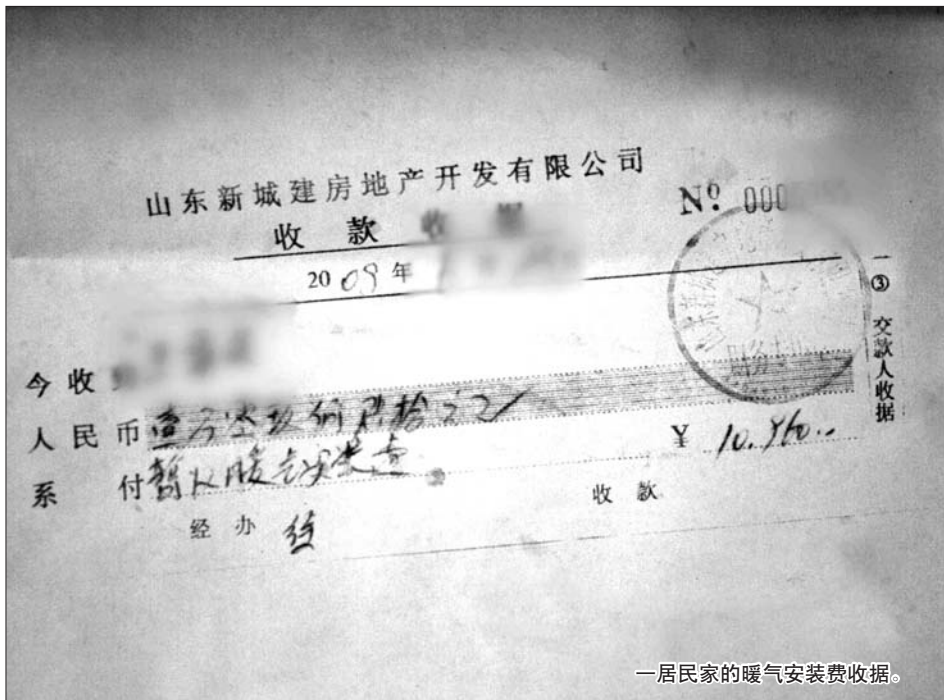 山东新城建房地产开发有限公司
收款
№ 000
2009年
③ 交款人收据
今收
人民币 壹万零玖佰 拾元
¥ 10.960..
系付 暂收暖气安装
经办 收款
财务
一居民家的暖气安装费收据。